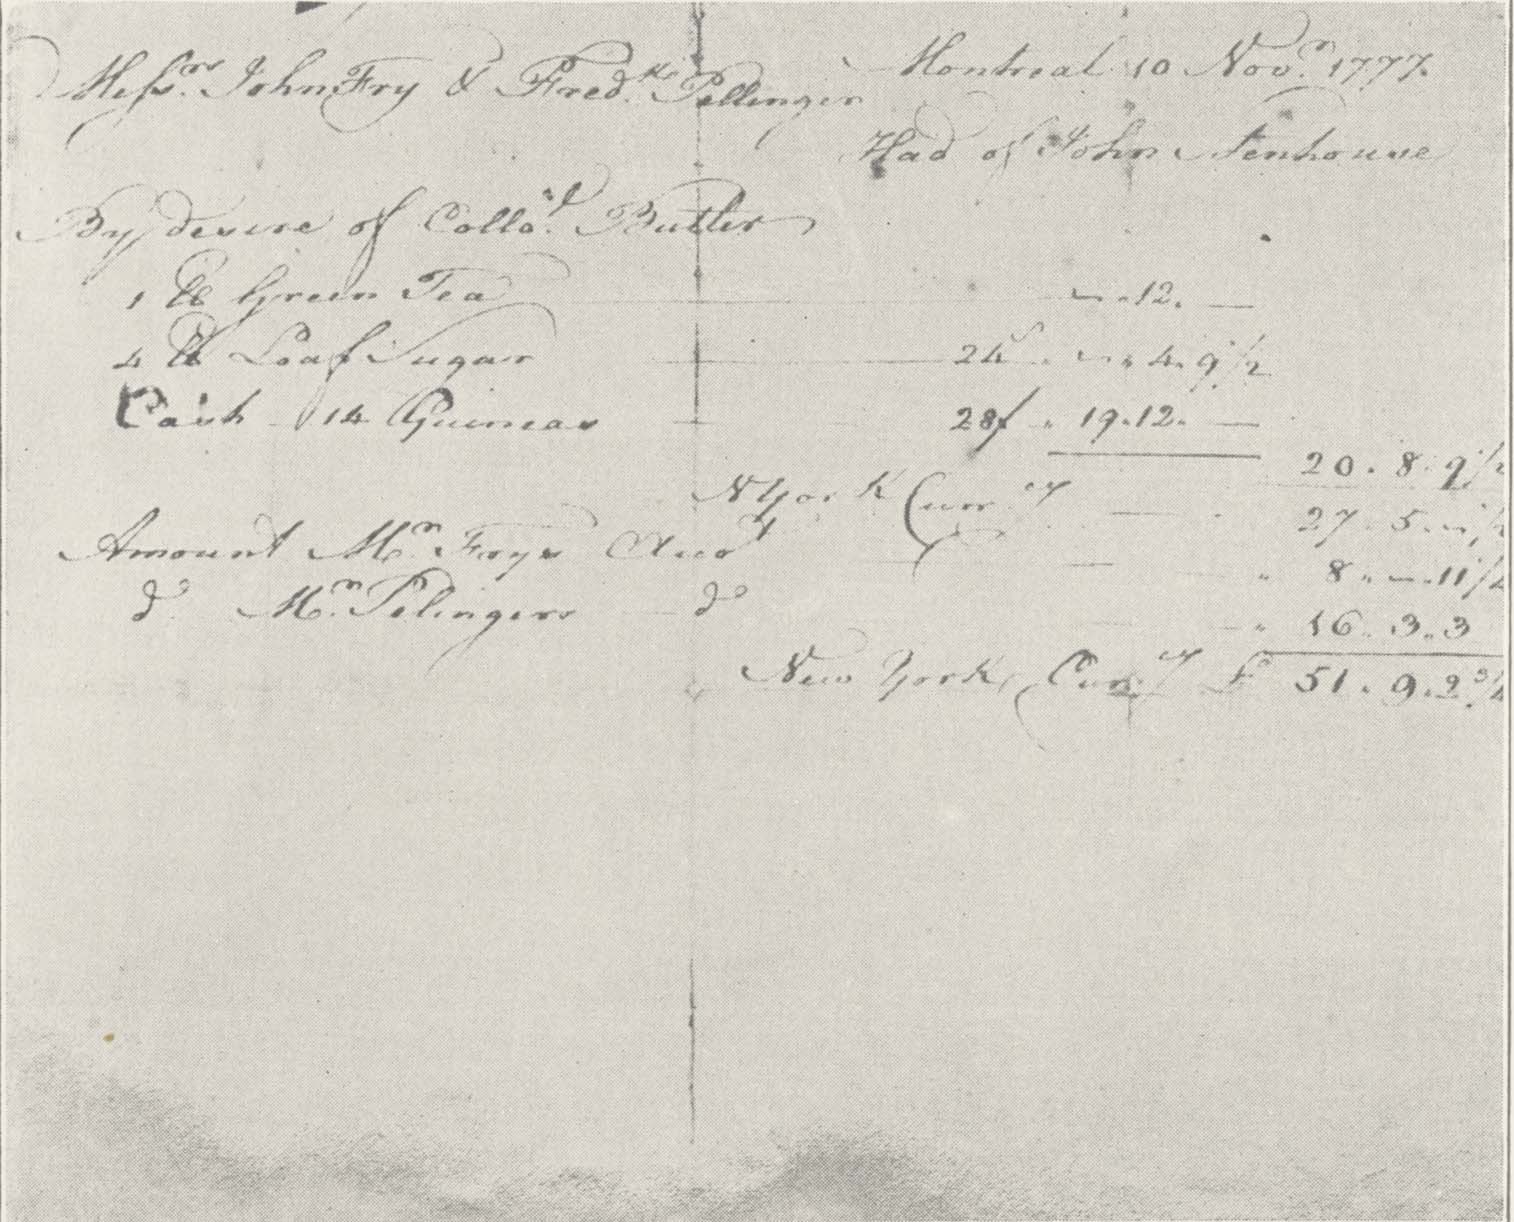 Montreal 10 Nov.r 1777.
Mess.rs John Fry & Fred.k Pellinger
Had of John Stenhouse
By desire of Collo.l Butler
1 ℔ Green Tea — " 12. —
4 ℔ Loaf Sugar — " 4. 9 1/2
Cash — 14 Guineas — 28/ " 19. 12. —
20. 8. 9 1/2
N York Curr.cy — 27. 5.
Amount M.r Frys Acco.t — " 8. " — 11 1/4
d.o M.r Pelingers — d.o — " 16. 3. 3
New York Cur.cy £ 51. 9. 2 3/4